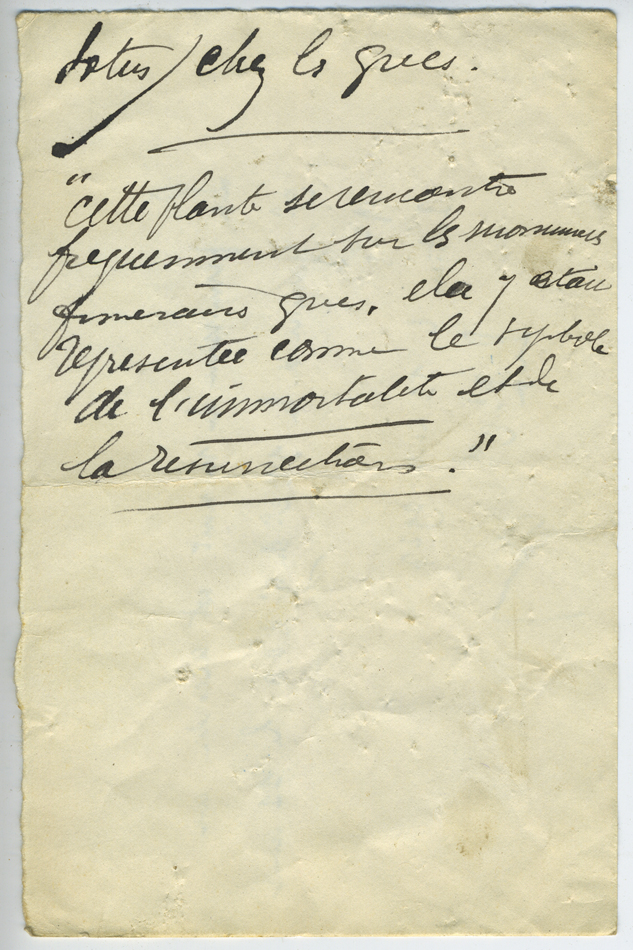 Lotus / chez les grecs.
"cette plante se rencontre
frequemment sur les monuments
funeraires grecs, elle y etait
représentée comme le symbole
de l'immortalité et de
la resurrection."